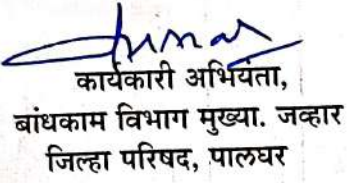 कार्यकारी अभियंता,
बांधकाम विभाग मुख्या. जव्हार
जिल्हा परिषद, पालघर